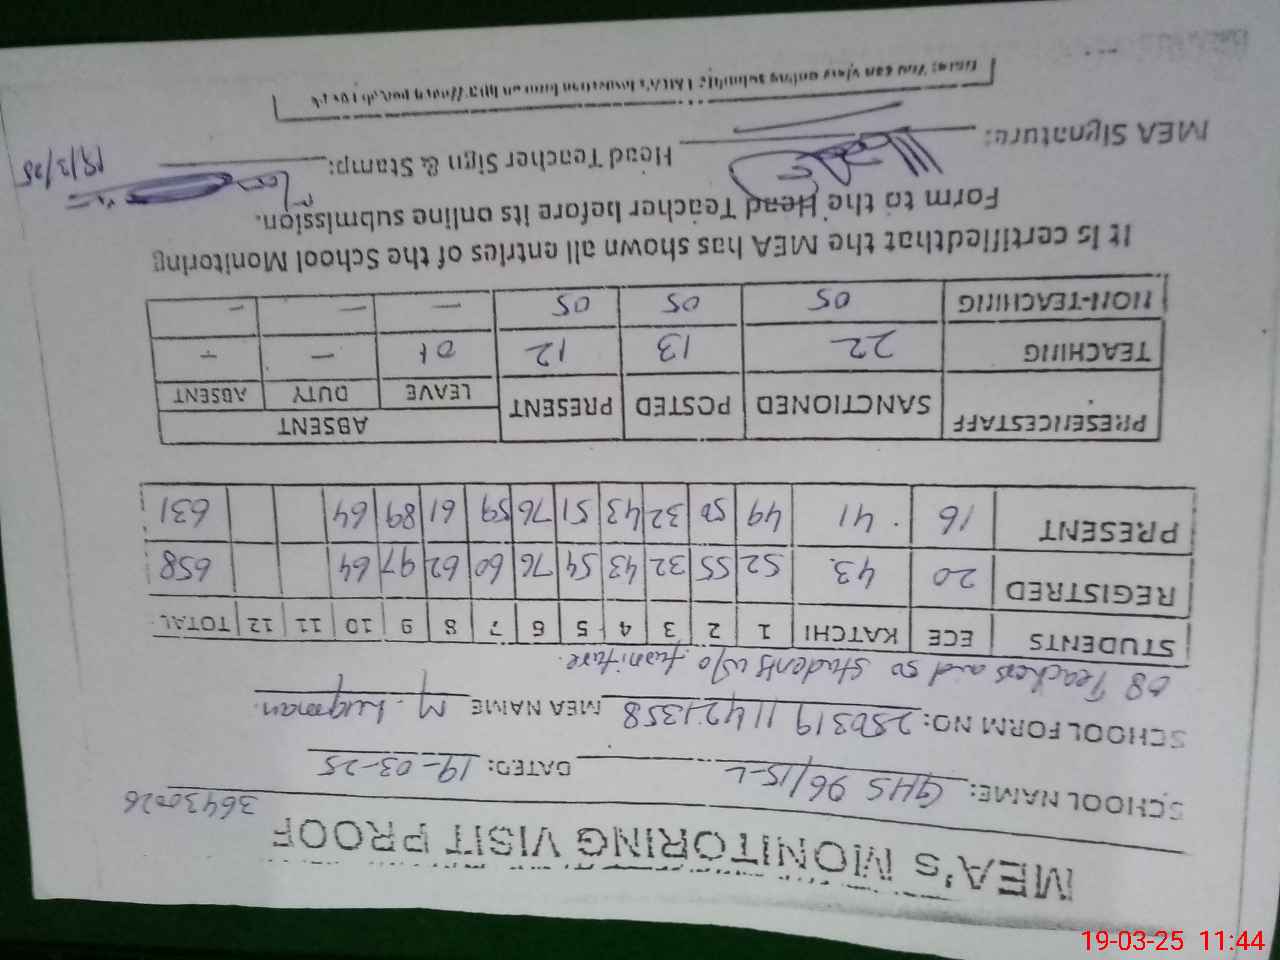 MEA's MONITORING VISIT PROOF
36430026
SCHOOL NAME: GHS 96/15-L DATED: 19-03-25
SCHOOL FORM NO: 250319114421358 MEA NAME M. Luqman.
08 Teachers and 50 students w/o furniture.
STUDENTS ECE KATCHI 1 2 3 4 5 6 7 8 9 10 11 12 TOTAL
REGISTRED 20 43 52 55 32 43 54 76 60 62 97 64 658
PRESENT 16 41 49 50 32 43 51 76 59 61 89 64 631
PRESENCESTAFF SANCTIONED POSTED PRESENT ABSENT
LEAVE DUTY ABSENT
TEACHING 22 13 12 01 – –
NON-TEACHING 05 05 05 – – –
It is certifiedthat the MEA has shown all entries of the School Monitoring
Form to the Head Teacher before its online submission.
MEA Signature: Head Teacher Sign & Stamp: 19/3/25
You can view online
19-03-25 11:44